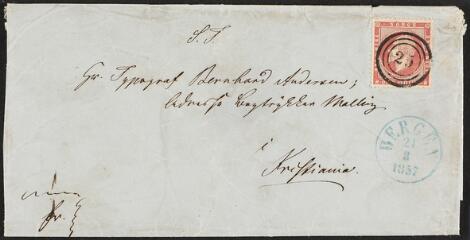 NORGE
25
S. T.
Hr. Typograf Bernhard Andersen;
Adresse Bogtrykker Malling
i
Kristiania.
BERGEN
21
8
1857
fr.